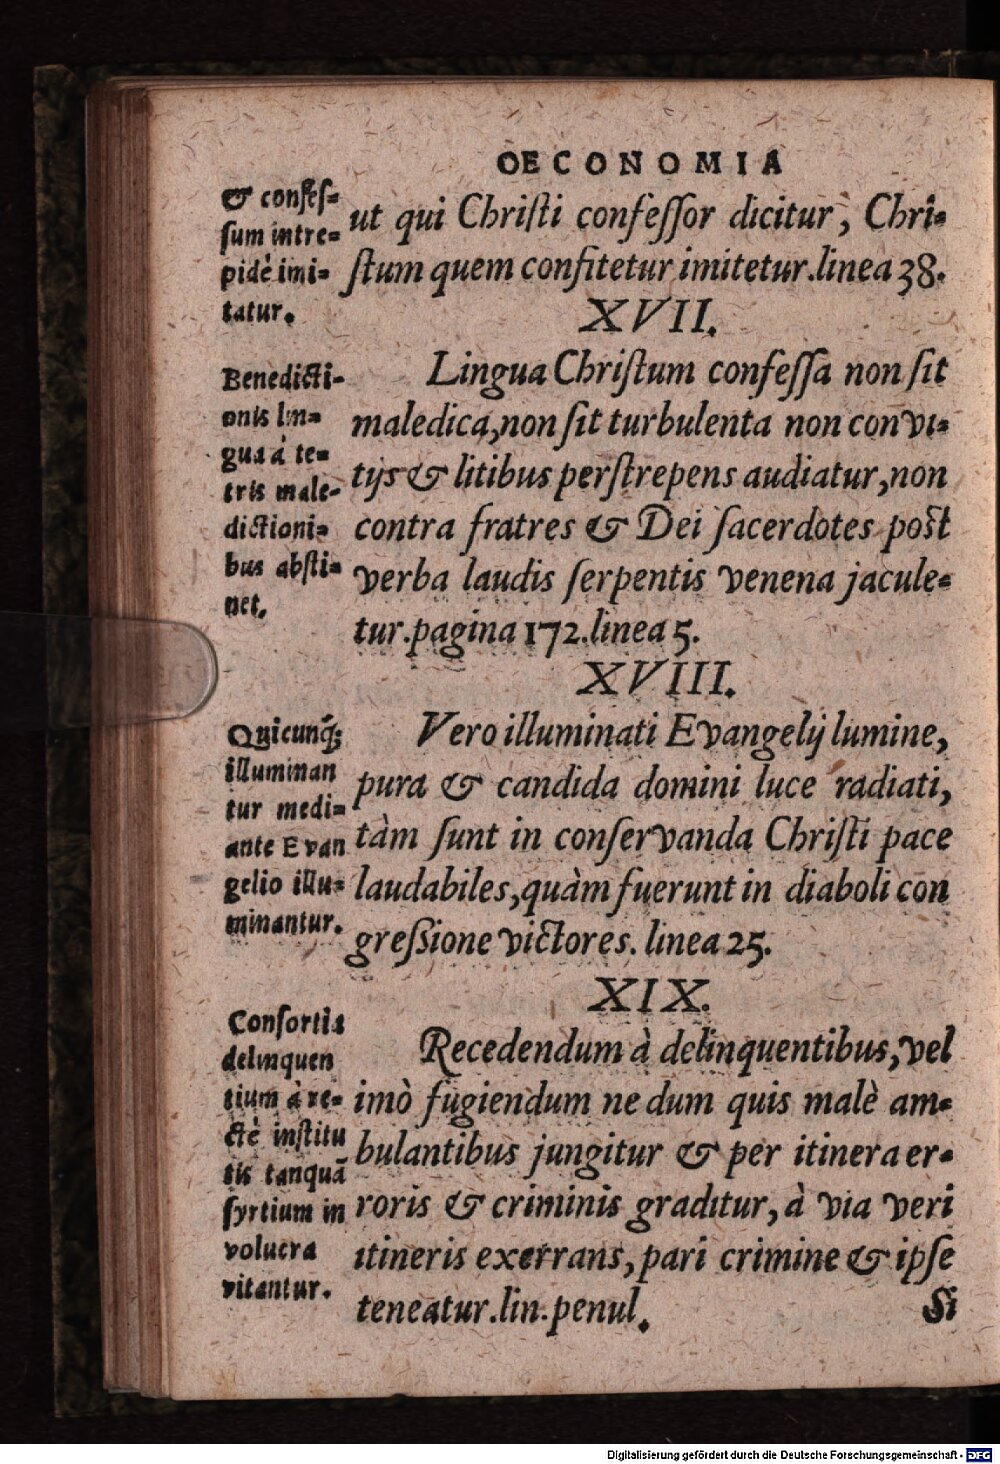 OECONOMIA
& confeſ=
ſum intre=
pidè imi=
tatur.
ut qui Chriſti confeſſor dicitur, Chri=
ſtum quem confitetur imitetur. linea 38.
XVII.
Benedicti-
onis lin=
gua à te=
tris male-
dictioni=
bus abſti=
net.
Lingua Chriſtum confeſſa non ſit
maledica, non ſit turbulenta non convi=
tijs & litibus perſtrepens audiatur, non
contra fratres & Dei ſacerdotes poſt
verba laudis ſerpentis venena jacule=
tur. pagina 172. linea 5.
XVIII.
Quicunq́;
illuminan
tur medi=
ante Evan
gelio illu=
minantur.
Vero illuminati Evangelij lumine,
pura & candida domini luce radiati,
tàm ſunt in conſervanda Chriſti pace
laudabiles, quàm fuerunt in diaboli con
greſsione victores. linea 25.
XIX.
Conſortia
delinquen
tium à re=
ctè inſtitu
tis tanquã
ſyrtium in
volucra
vitantur.
Recedendum à delinquentibus, vel
imò fugiendum ne dum quis malè am=
bulantibus jungitur & per itinera er=
roris & criminis graditur, à via veri
itineris exerrans, pari crimine & ipſe
teneatur. lin. penul.
Si
Digitalisierung gefördert durch die Deutsche Forschungsgemeinschaft - DFG